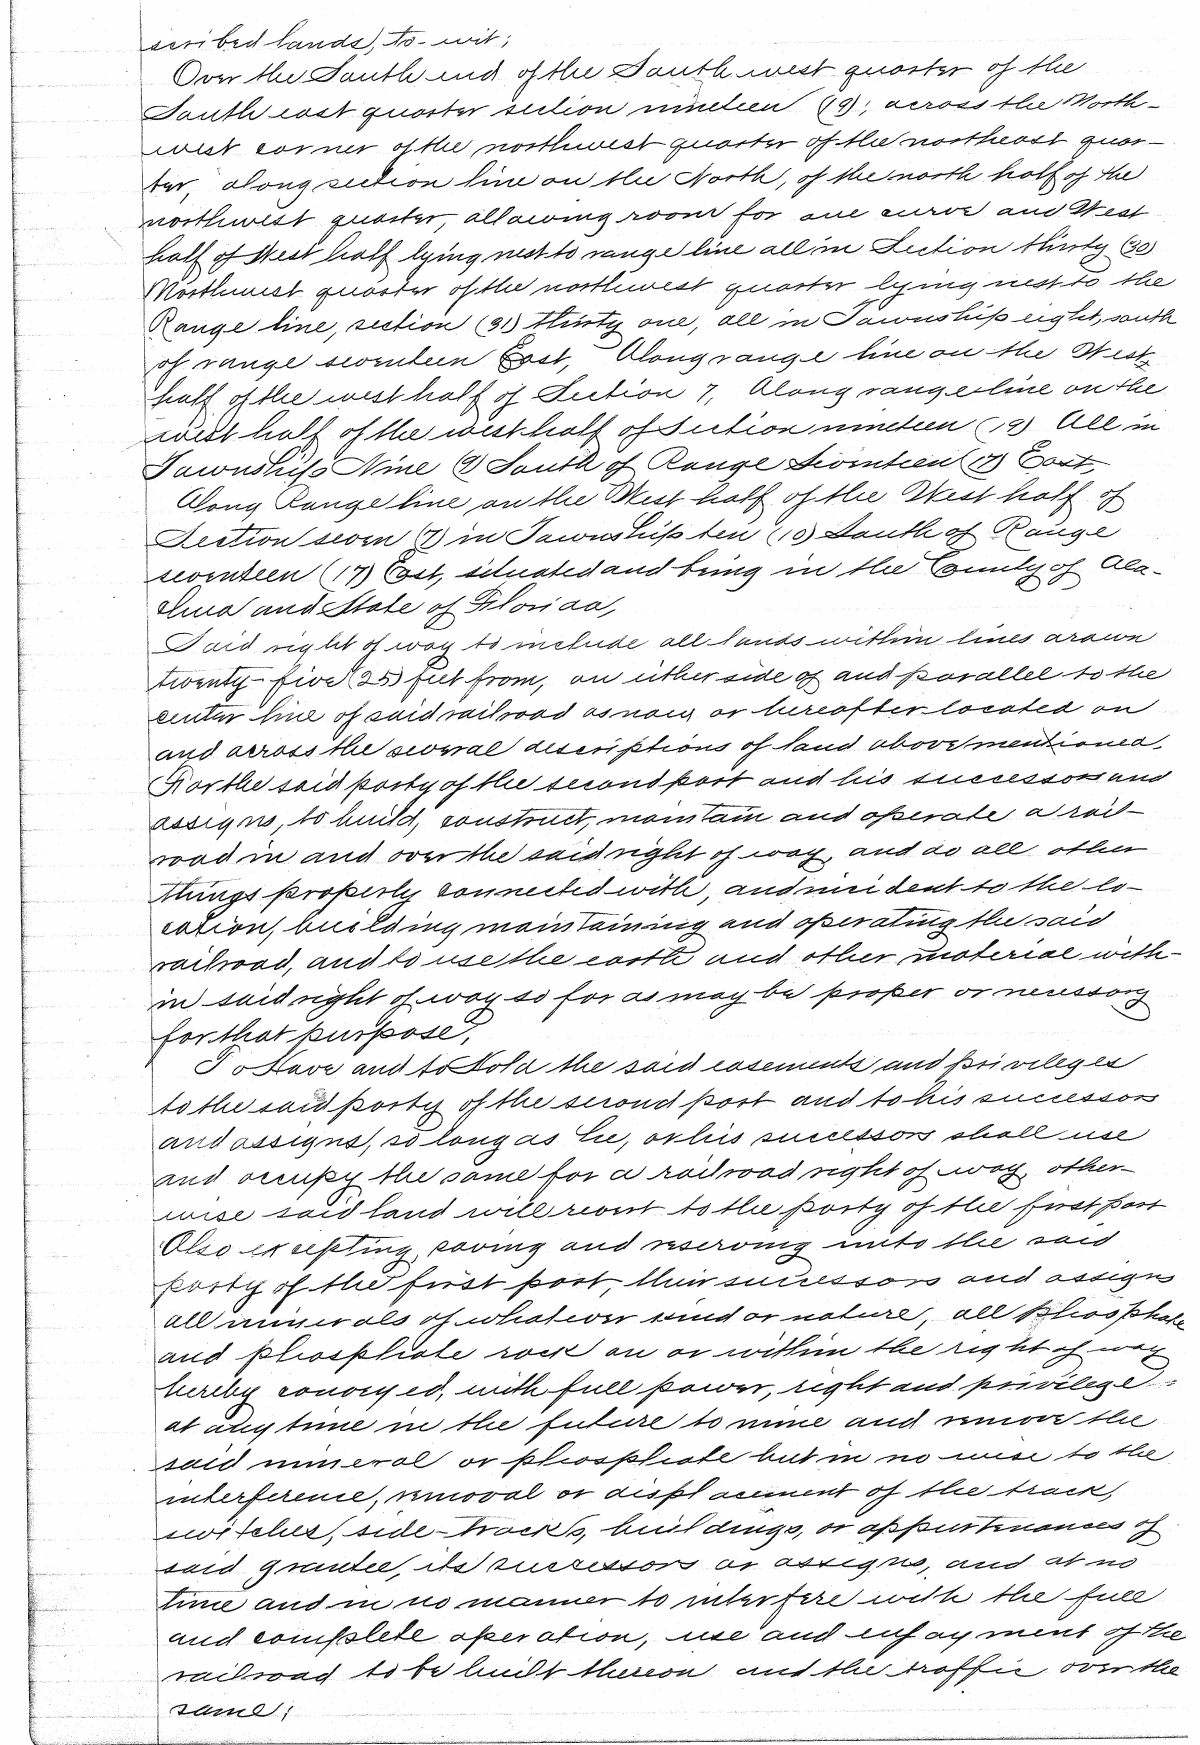 scribed lands, to-wit;
Over the South end of the South west quarter of the
South east quarter section nineteen (19); across the North-
west corner of the northwest quarter of the northeast quar-
ter, along section line on the North, of the north half of the
northwest quarter, allowing room for one curve and West
half of West half lying next to range line all in Section thirty (30)
Northwest quarter of the northwest quarter lying next to the
Range line, section (31) thirty one, all in Township eight, south
of range seventeen East, Along range line on the West
half of the west half of Section 7, Along range line on the
west half of the west half of Section nineteen (19) All in
Township Nine (9) South of Range Seventeen (17) East,
Along Range line on the West half of the West half of
Section seven (7) in Township ten (10) South of Range
seventeen (17) East, situated and being in the County of Ala-
chua and State of Florida,
Said right of way to include all lands within lines drawn
twenty-five (25) feet from, on either side of and parallel to the
center line of said railroad as now or hereafter located on
and across the several descriptions of land above mentioned.
For the said party of the second part and his successors and
assigns, to build, construct, maintain and operate a rail-
road in and over the said right of way, and do all other
things properly connected with, and incident to the lo-
cation, building maintaining and operating the said
railroad, and to use the earth and other material with-
in said right of way so far as may be proper or necessary
for that purpose.
To Have and to Hold the said easements and privileges
to the said party of the second part and to his successors
and assigns, so long as he, or his successors shall use
and occupy the same for a railroad right of way, other-
wise said land will revert to the party of the first part
Also excepting, saving and reserving unto the said
party of the first part, their successors and assigns
all minerals of whatever kind or nature, all phosphate
and phosphate rock on or within the right of way
hereby conveyed, with full power, right and privilege
at any time in the future to mine and remove the
said mineral or phosphate but in no wise to the
interference, removal or displacement of the track,
switches, side-tracks, buildings, or appurtenances of
said grantee, its successors or assigns, and at no
time and in no manner to interfere with the full
and complete operation, use and enjoyment of the
railroad to be built thereon and the traffic over the
same;